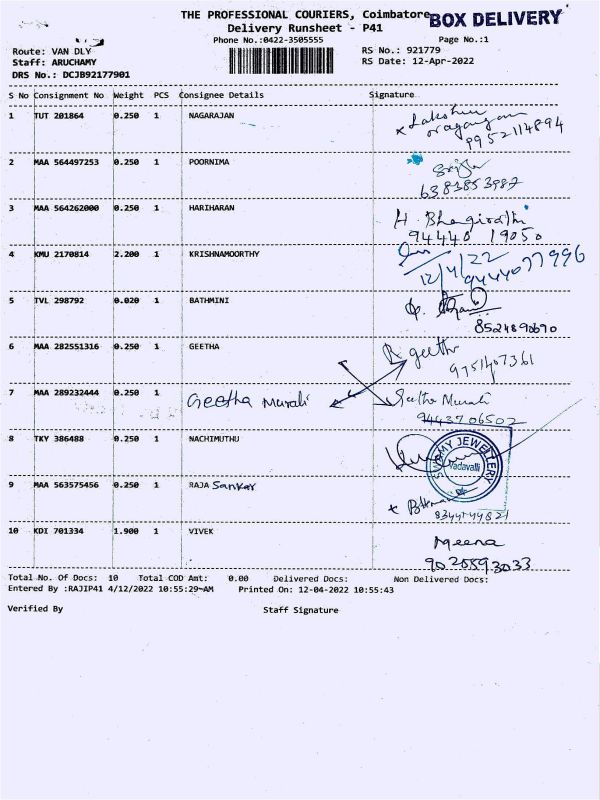 THE PROFESSIONAL COURIERS, Coimbatore BOX DELIVERY
Delivery Runsheet - P41
Phone No.:0422-3505555 Page No.:1
Route: VAN DLY RS No.: 921779
Staff: ARUCHAMY RS Date: 12-Apr-2022
DRS No.: DCJB92177901
S No Consignment No Weight PCS Consignee Details Signature
1 TUT 201864 0.250 1 NAGARAJAN
9952114894
2 MAA 564497253 0.250 1 POORNIMA
6381853987
3 MAA 564262000 0.250 1 HARIHARAN H. Bhagirathi
94440 19050
4 KMU 2170814 2.200 1 KRISHNAMOORTHY
12/4/22 9444077996
5 TVL 298792 0.020 1 BATHMINI
8524890690
6 MAA 282551316 0.250 1 GEETHA R geetha
9751407361
7 MAA 289232444 0.250 1 Geetha Murali Geetha Murali
9443706502
8 TKY 386488 0.250 1 NACHIMUTHU
SWAMY JEWELLERY
Vadavalli
9 MAA 563575456 0.250 1 RAJA Sankar
8344144821
10 KDI 701334 1.900 1 VIVEK Meena
9020593033
Total No. Of Docs: 10 Total COD Amt: 0.00 Delivered Docs: Non Delivered Docs:
Entered By :RAJIP41 4/12/2022 10:55:29-AM Printed On: 12-04-2022 10:55:43
Verified By Staff Signature